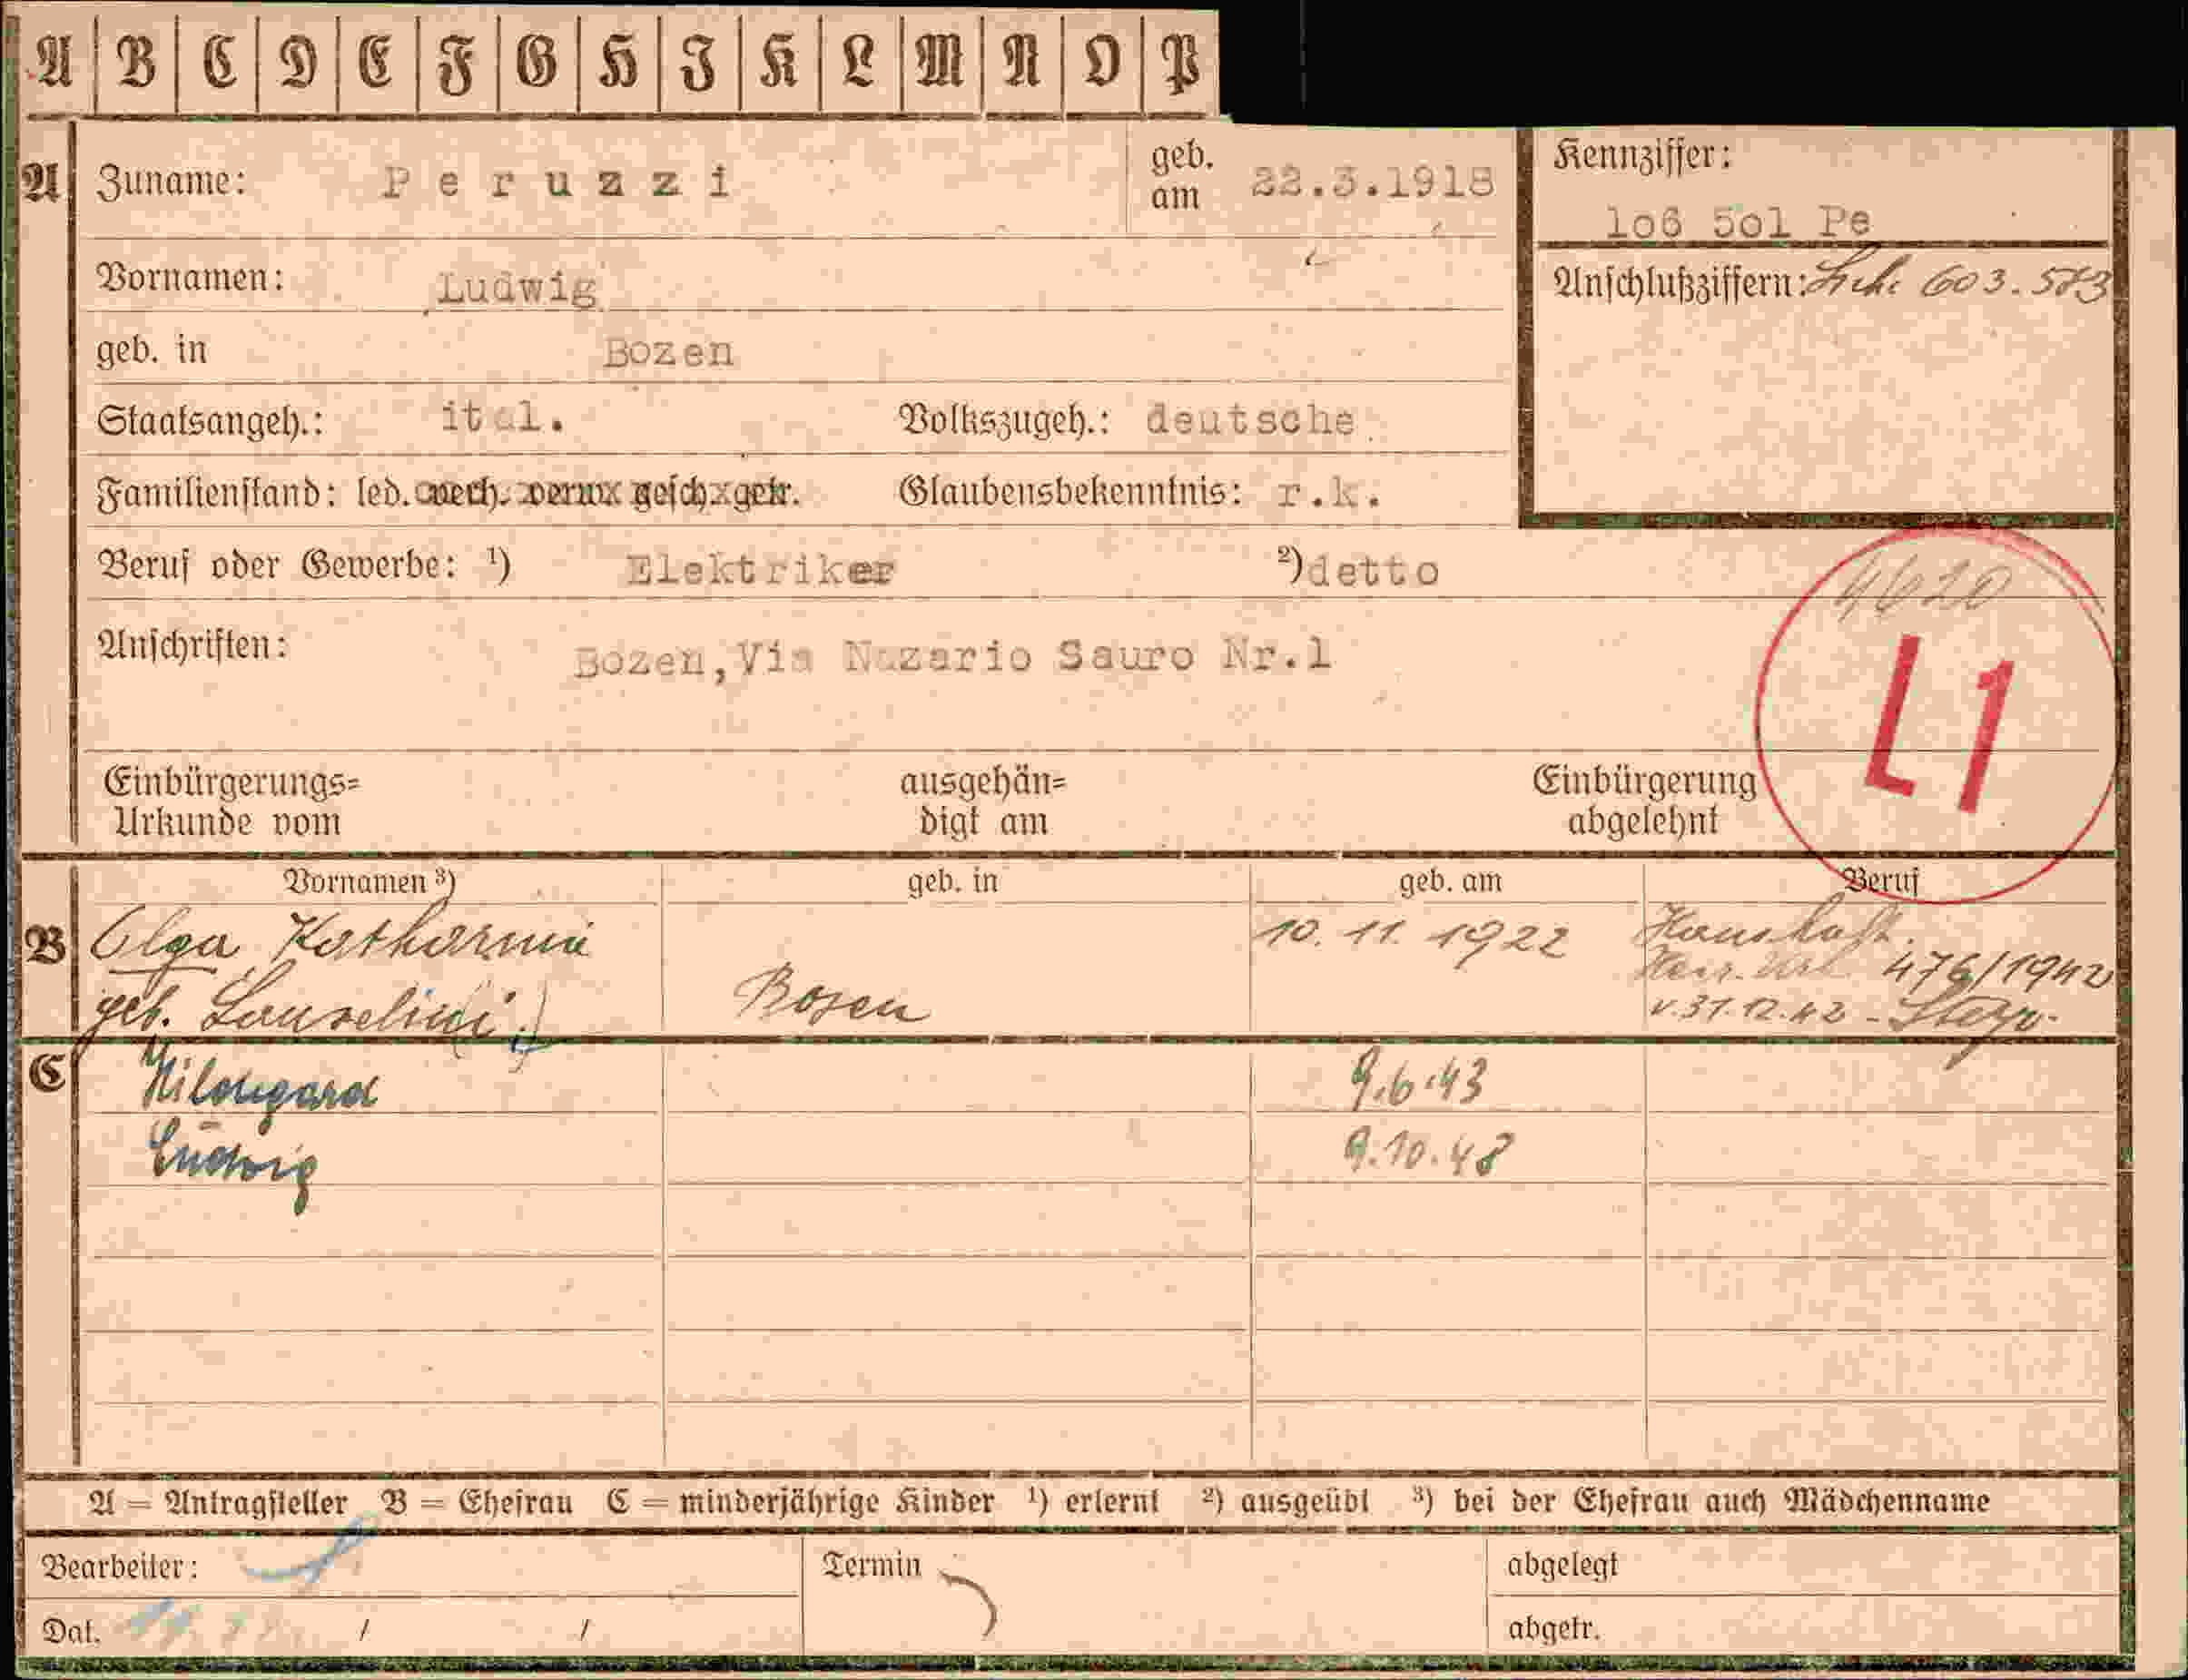 A B C D E F G H I K L M N O P
A Zuname: Peruzzi geb. am 22.3.1918
Kennziffer: 106 501 Pe
Vornamen: Ludwig
Anschlußziffern: 603.573
geb. in Bozen
Staatsangeh.: ital. Volkszugeh.: deutsche
Familienstand: led. verh. verw. gesch. getr. Glaubensbekenntnis: r.k.
Beruf oder Gewerbe: ¹) Elektriker ²) detto
4620
Anschriften: Bozen, Via Nazario Sauro Nr.1
L1
Einbürgerungs= Urkunde vom ausgehän= digt am Einbürgerung abgelehnt
Vornamen ³) geb. in geb. am Beruf
B Olga Katharina 10. 11. 1922 Haushalt.
476/1942
geb. Bozen v. 31.12.42 - Steyr
C Hildegard 9.6.43
Ludwig 9.10.48
A = Antragsteller B = Ehefrau C = minderjährige Kinder ¹) erlernt ²) ausgeübt ³) bei der Ehefrau auch Mädchenname
Bearbeiter: Termin abgelegt
Dat. / / abgetr.